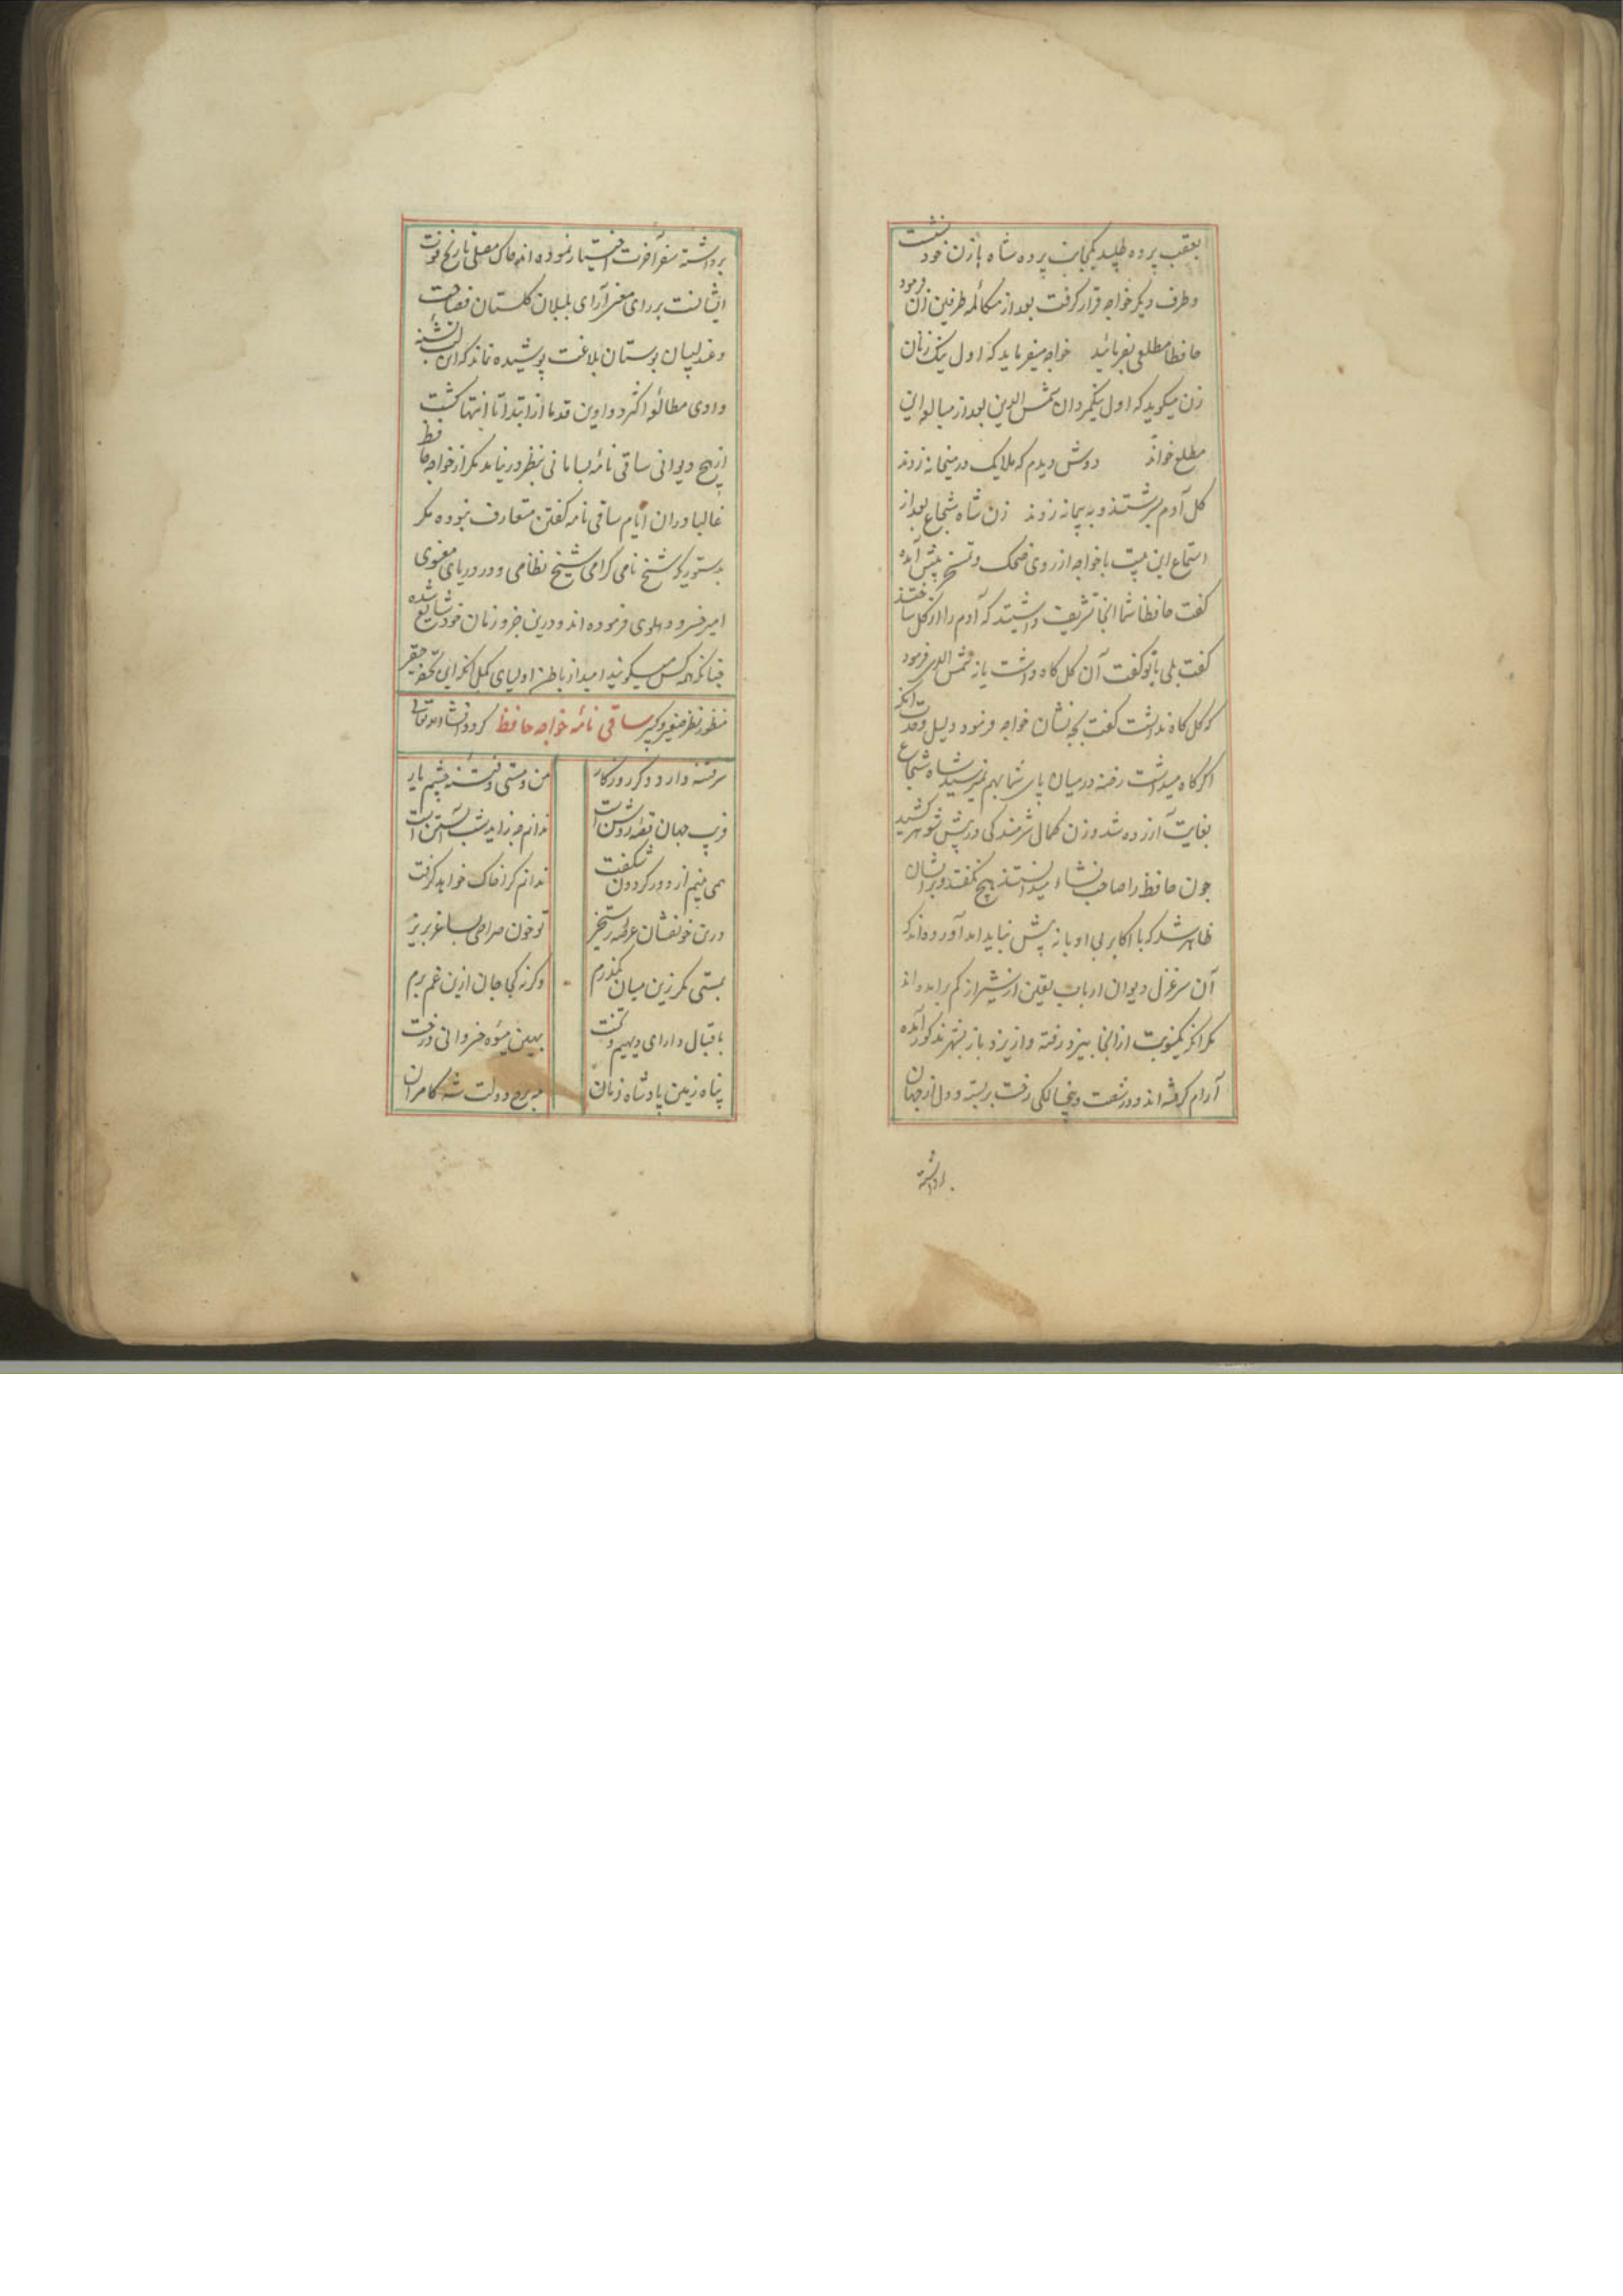 بعقب پرده طلبید یکجانب پرده شاه با زن خود نشست
و طرف دیگر خواجه قرار گرفت بعد از مکالمه طرفین زن فرمود
حافظا مطلعی بفرمائید خواجه میفرماید که اول نیک زنان
زن میگوید که اول نیکمردان شمس الدین بعد از مبالغه این
مطلع خواند دوش دیدم که ملایک در میخانه زدند
کل آدم بسرشتند و به پیمانه زدند زن شاه شجاع بعد از
استماع این بیت با خواجه از روی ضحک و تمسخر پیش آمده
کفت حافظا شما آنجا تشریف داشتید که آدم را از کل ساختند
کفت بلی بانو کفت آن کل کاه داشت یا نه شمس الدین فرمود
که کل کاه نداشت کفت بچه نشان خواجه فرمود دلیل آنکه
اکر کاه میداشت رخنه در میان پای شما بهم نمیرسید شاه شجاع
بغایت آزرده شد و زن کمال شرمندکی در پیش شوهر کشید
چون حافظ را صاحب نشاء میدانستند هیچ نکفتند و برایشان
ظاهر شد که با اکابر بی ادبانه پیش نباید آمد آورده‌اند که
آن سر غزل دیوان ارباب یقین از شیراز کم برآمده‌اند
مکر آنکه یکنوبت از آنجا بیزد رفته و از یزد باز بشهر مذکور آمده
آرام کرفته‌اند و در شصت و پنجسالکی رخت بربسته و دل از جهان
برداشته
برداشته سفر آخرت اختیار نموده‌اند خاک مصلی تاریخ فوت
ایشانست بر رای مغز آرای بلبلان کلستان فصاحت
و عندلیبان بوستان بلاغت پوشیده نماند که این لب تشنه
وادی مطالعه اکثر دواوین قدما از ابتدا تا انتها کشت
از هیچ دیوانی ساقی نامه بسامانی بنظر در نیامد مکر از خواجه حافظ
غالبا در آن ایام ساقی نامه کفتن متعارف نبوده مکر
بدستوریکه شیخ نامی کرامی شیخ نظامی و در دریای معنوی
امیر خسرو دهلوی فرموده‌اند و درین جزو زمان خود شایع شده
چنانکه همه کس میکویند امید از باطن اولیای کمل آنکه این تحفه حقیر
منظور نظر صغیر و کبیر ساقی نامه خواجه حافظ کردد انشاء الله تعالی
سر فتنه دارد دکر روزکار من و مستی و فتنه چشم یار
فریب جهان قصه روشن است ندانم چه زاید شب آبستن است
همی بینم از دور کردون شکفت ندانم کرا خاک خواهد کرفت
درین خونفشان عرصه رستخیز تو خون صراحی بساغر بریز
بمستی مکر زین میان بکذرم وکرنه کجا جان ازین غم برم
باقبال دارای دیهیم و تخت بهین میوه خسروانی درخت
پناه زمین پادشاه زمان مه برج دولت شه کامران